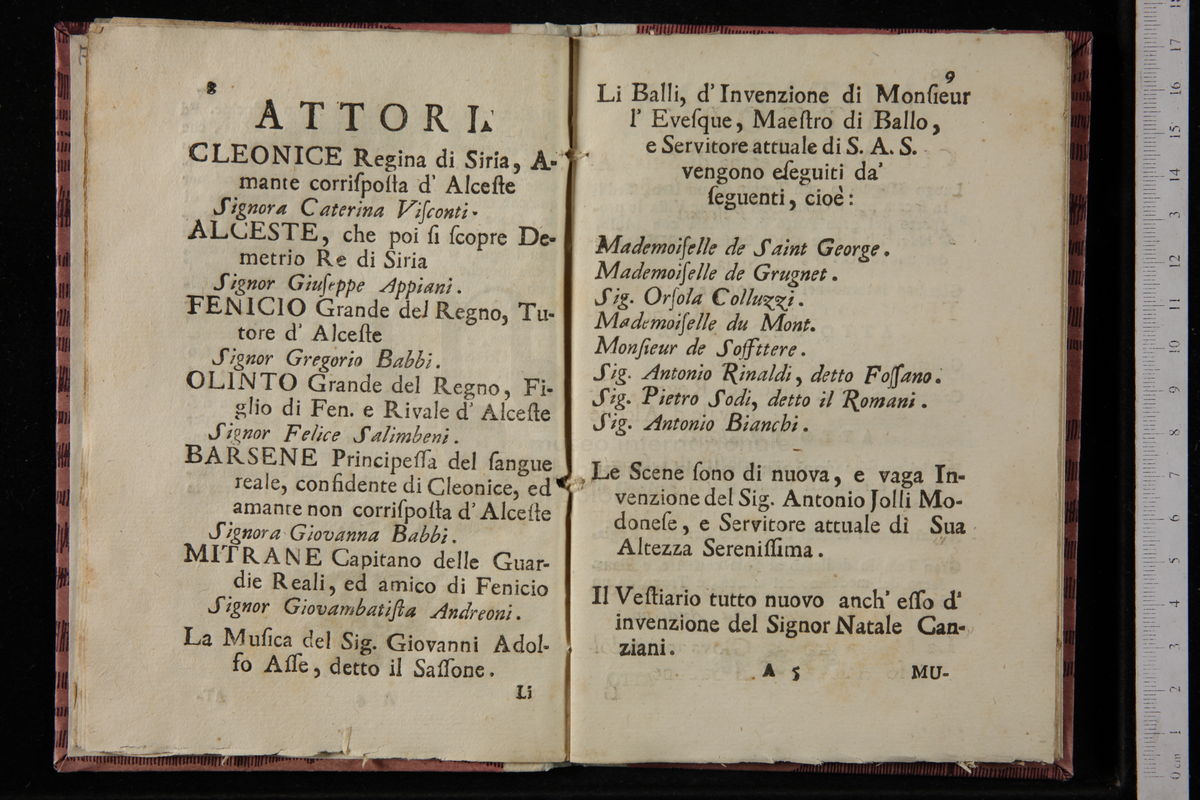 8
ATTORI.
CLEONICE Regina di Siria, A-
mante corriſpoſta d' Alceſte
Signora Caterina Viſconti.
ALCESTE, che poi ſi ſcopre De-
metrio Re di Siria
Signor Giuſeppe Appiani.
FENICIO Grande del Regno, Tu-
tore d' Alceſte
Signor Gregorio Babbi.
OLINTO Grande del Regno, Fi-
glio di Fen. e Rivale d' Alceſte
Signor Felice Salimbeni.
BARSENE Principeſſa del ſangue
reale, confidente di Cleonice, ed
amante non corriſpoſta d' Alceſte
Signora Giovanna Babbi.
MITRANE Capitano delle Guar-
die Reali, ed amico di Fenicio
Signor Giovambatiſta Andreoni.
La Muſica del Sig. Giovanni Adol-
fo Aſſe, detto il Saſſone.
Li
9
Li Balli, d' Invenzione di Monſieur
l' Eveſque, Maeſtro di Ballo,
e Servitore attuale di S. A. S.
vengono eſeguiti da'
ſeguenti, cioè:
Mademoiſelle de Saint George.
Mademoiſelle de Grugnet.
Sig. Orſola Colluzzi.
Mademoiſelle du Mont.
Monſieur de Soffittere.
Sig. Antonio Rinaldi, detto Foſſano.
Sig. Pietro Sodi, detto il Romani.
Sig. Antonio Bianchi.
Le Scene ſono di nuova, e vaga In-
venzione del Sig. Antonio Jolli Mo-
doneſe, e Servitore attuale di Sua
Altezza Sereniſſima.
Il Veſtiario tutto nuovo anch' eſſo d'
invenzione del Signor Natale Can-
ziani.
A 5 MU-